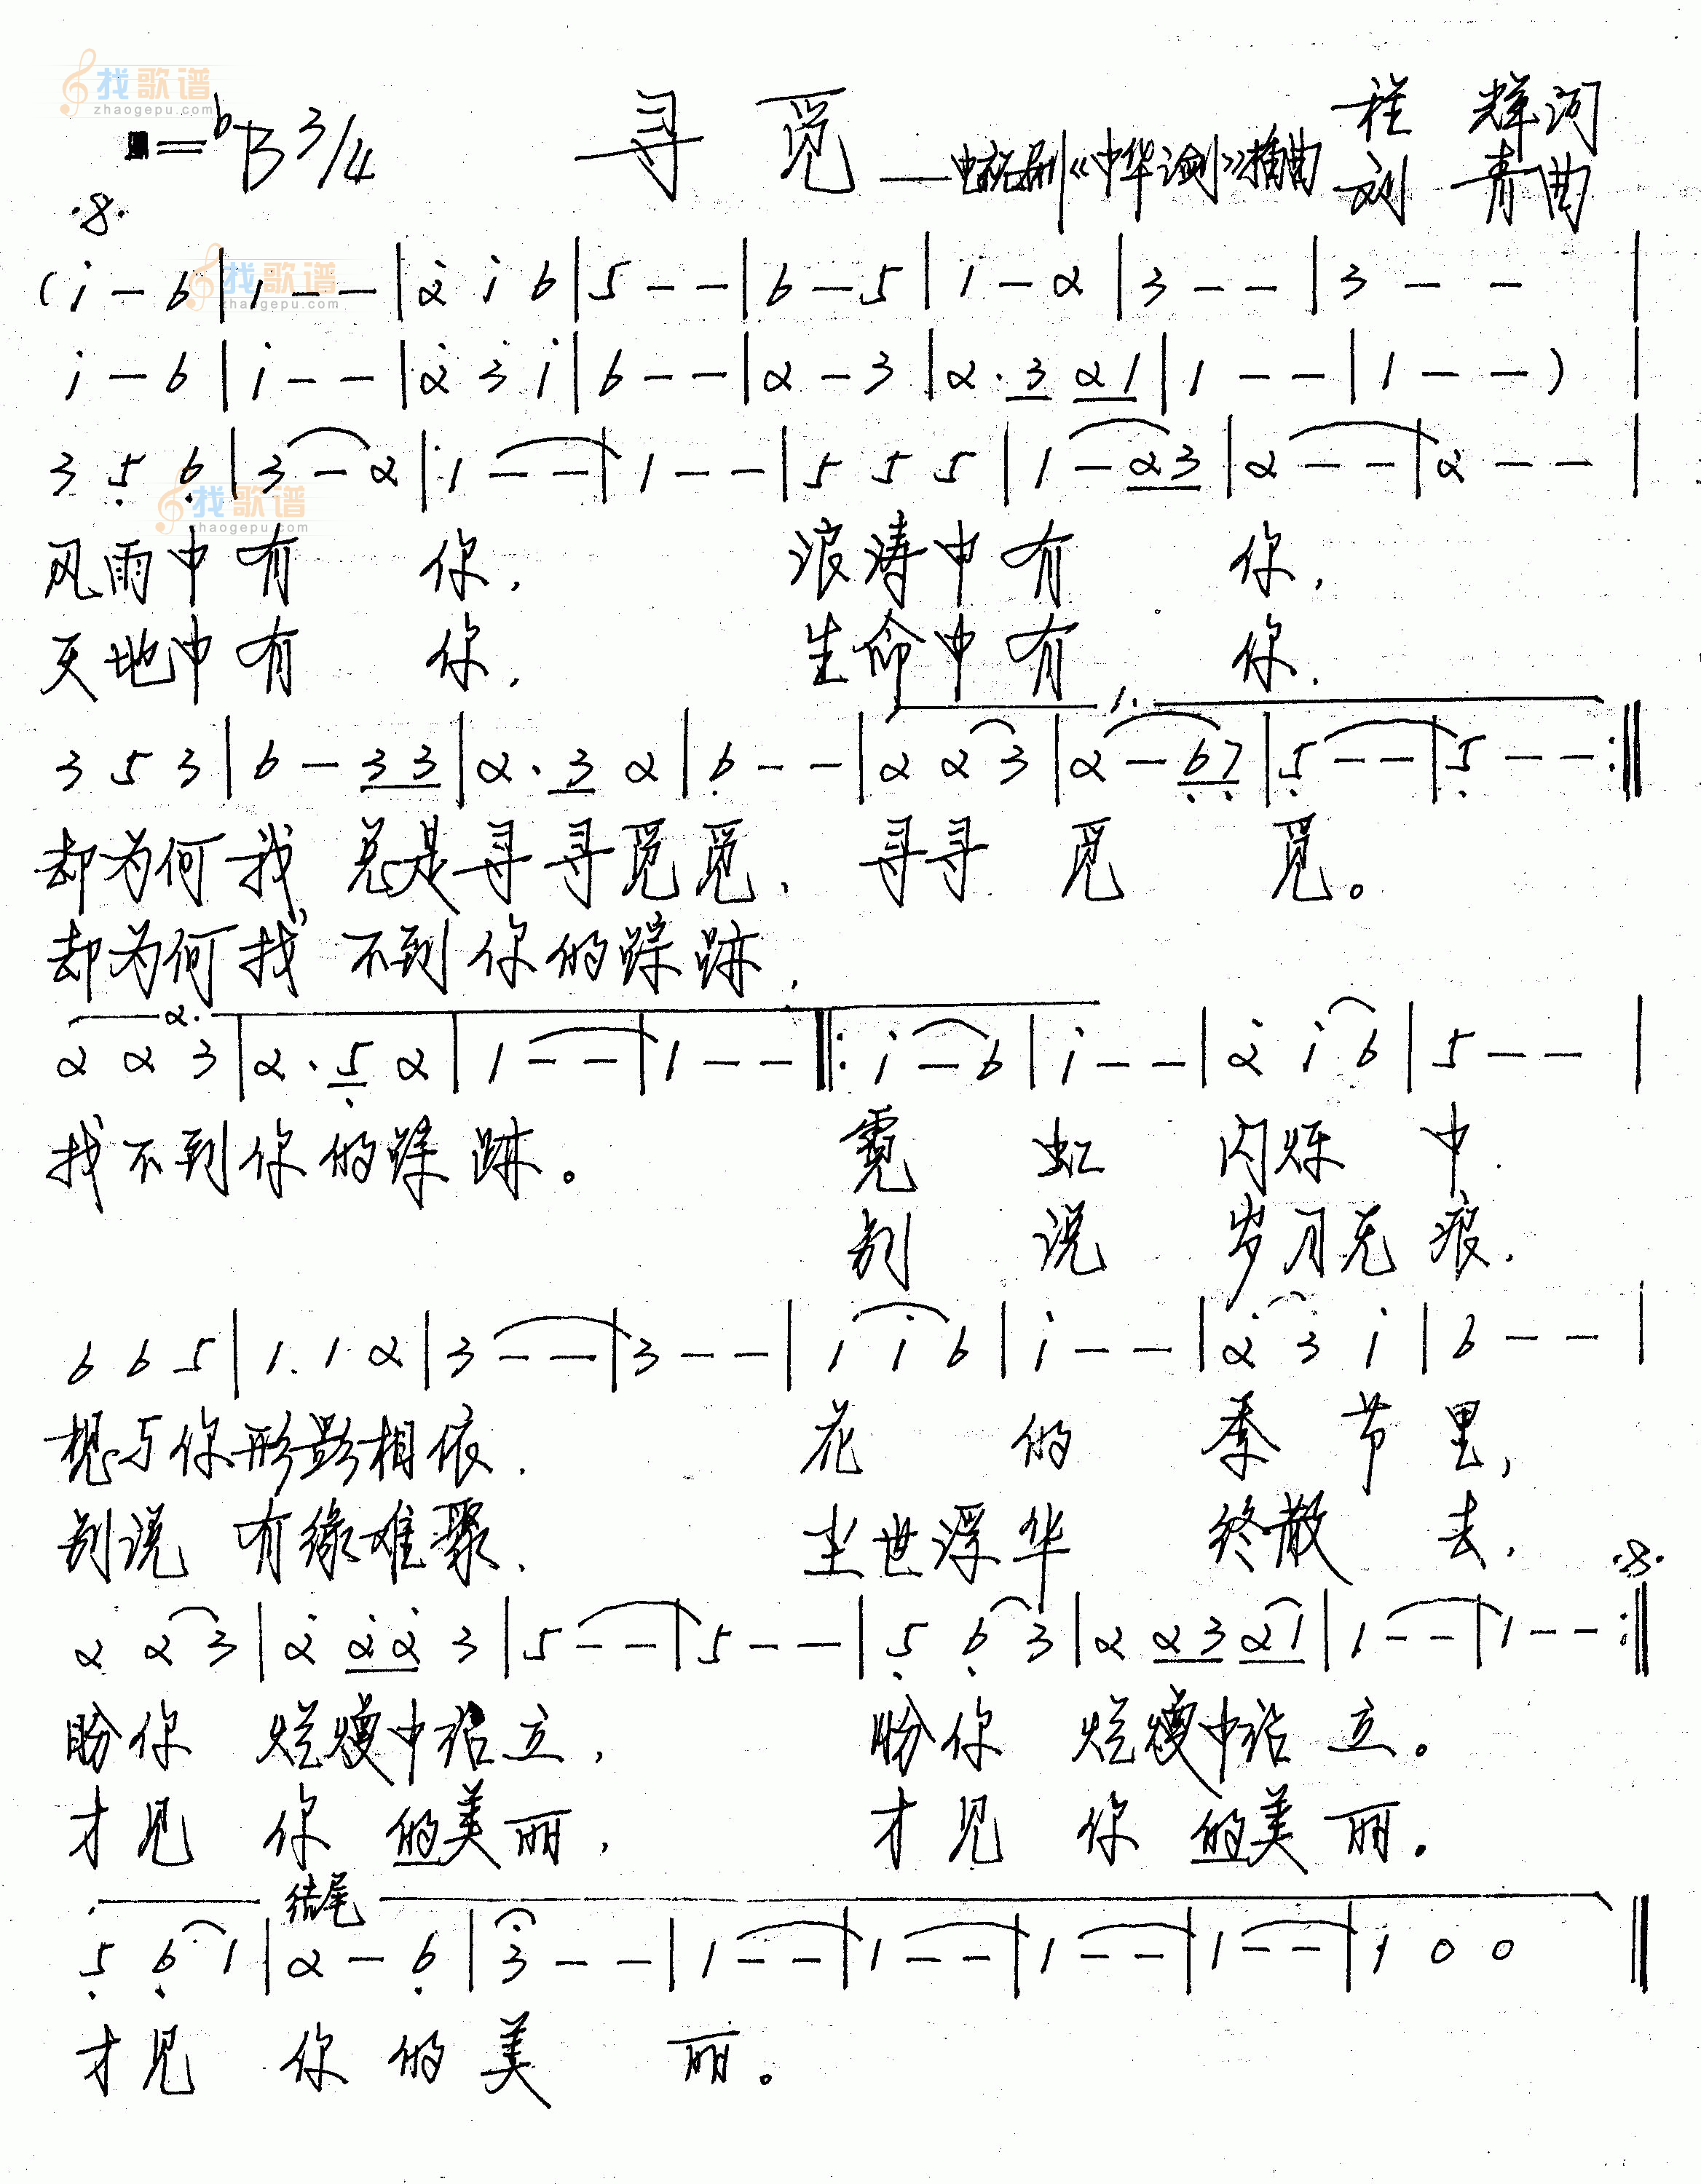 找歌谱
zhaogepu.com
=ᵇB 3/4 寻觅 ——电视剧《中华论剑》插曲 程 辉词
刘 青曲
(i̇ - 6 | 1 - - | 2̇ i̇ 6 | 5 - - | 6 - 5 | 1 - 2 | 3 - - | 3 - - |
找歌谱
zhaogepu.com
i̇ - 6 | i̇ - - | 2̇ 3̇ i̇ | 6 - - | 2 - 3 | 2 · 3 2 1 | 1 - - | 1 - - ) |
3 5̣ 6̣ | 3 - 2 | 1 - - | 1 - - | 5 5 5 | 1 - 2 3 | 2 - - | 2 - - |
找歌谱
zhaogepu.com
风雨中有 你, 浪涛中有 你,
天地中有 你, 生命中有 你,
1.
3 5 3 | 6 - 3 3 | 2 · 3 2 | 6̣ - - | 2 2 3 | 2 - 6̣ 7̣ | 5̣ - - | 5̣ - - :‖
却为何我 总是寻寻觅觅, 寻寻 觅 觅。
却为何找 不到你的踪跡,
2.
2 2 3 | 2 · 5̣ 2 | 1 - - | 1 - - ‖: i̇ - 6 | i̇ - - | 2̇ i̇ 6 | 5 - - |
找不到你的踪跡。 霓 虹 闪烁 中
别 说 岁月无痕,
6 6 5 | 1. 1 2 | 3 - - | 3 - - | i̇ i̇ 6 | i̇ - - | 2̇ 3 i̇ | 6 - - |
想与你形影相依, 花 的 季 节 里,
别说 有缘难聚, 尘世浮华 终散 去,
2 2 3 | 2̇ 2̇ 2̇ 3 | 5 - - | 5 - - | 5̣ 6̣ 3 | 2 2 3 2 1 | 1 - - | 1 - - :‖
盼你 烂熳中站立, 盼你 烂熳中站立。
才见 你 的美丽, 才见 你 的美丽。
结尾
5̣ 6̣ 1 | 2 - 6̣ | 3 - - | 1 - - | 1 - - | 1 - - | 1 - - | 1 0 0 ‖
才见 你 的美 丽。